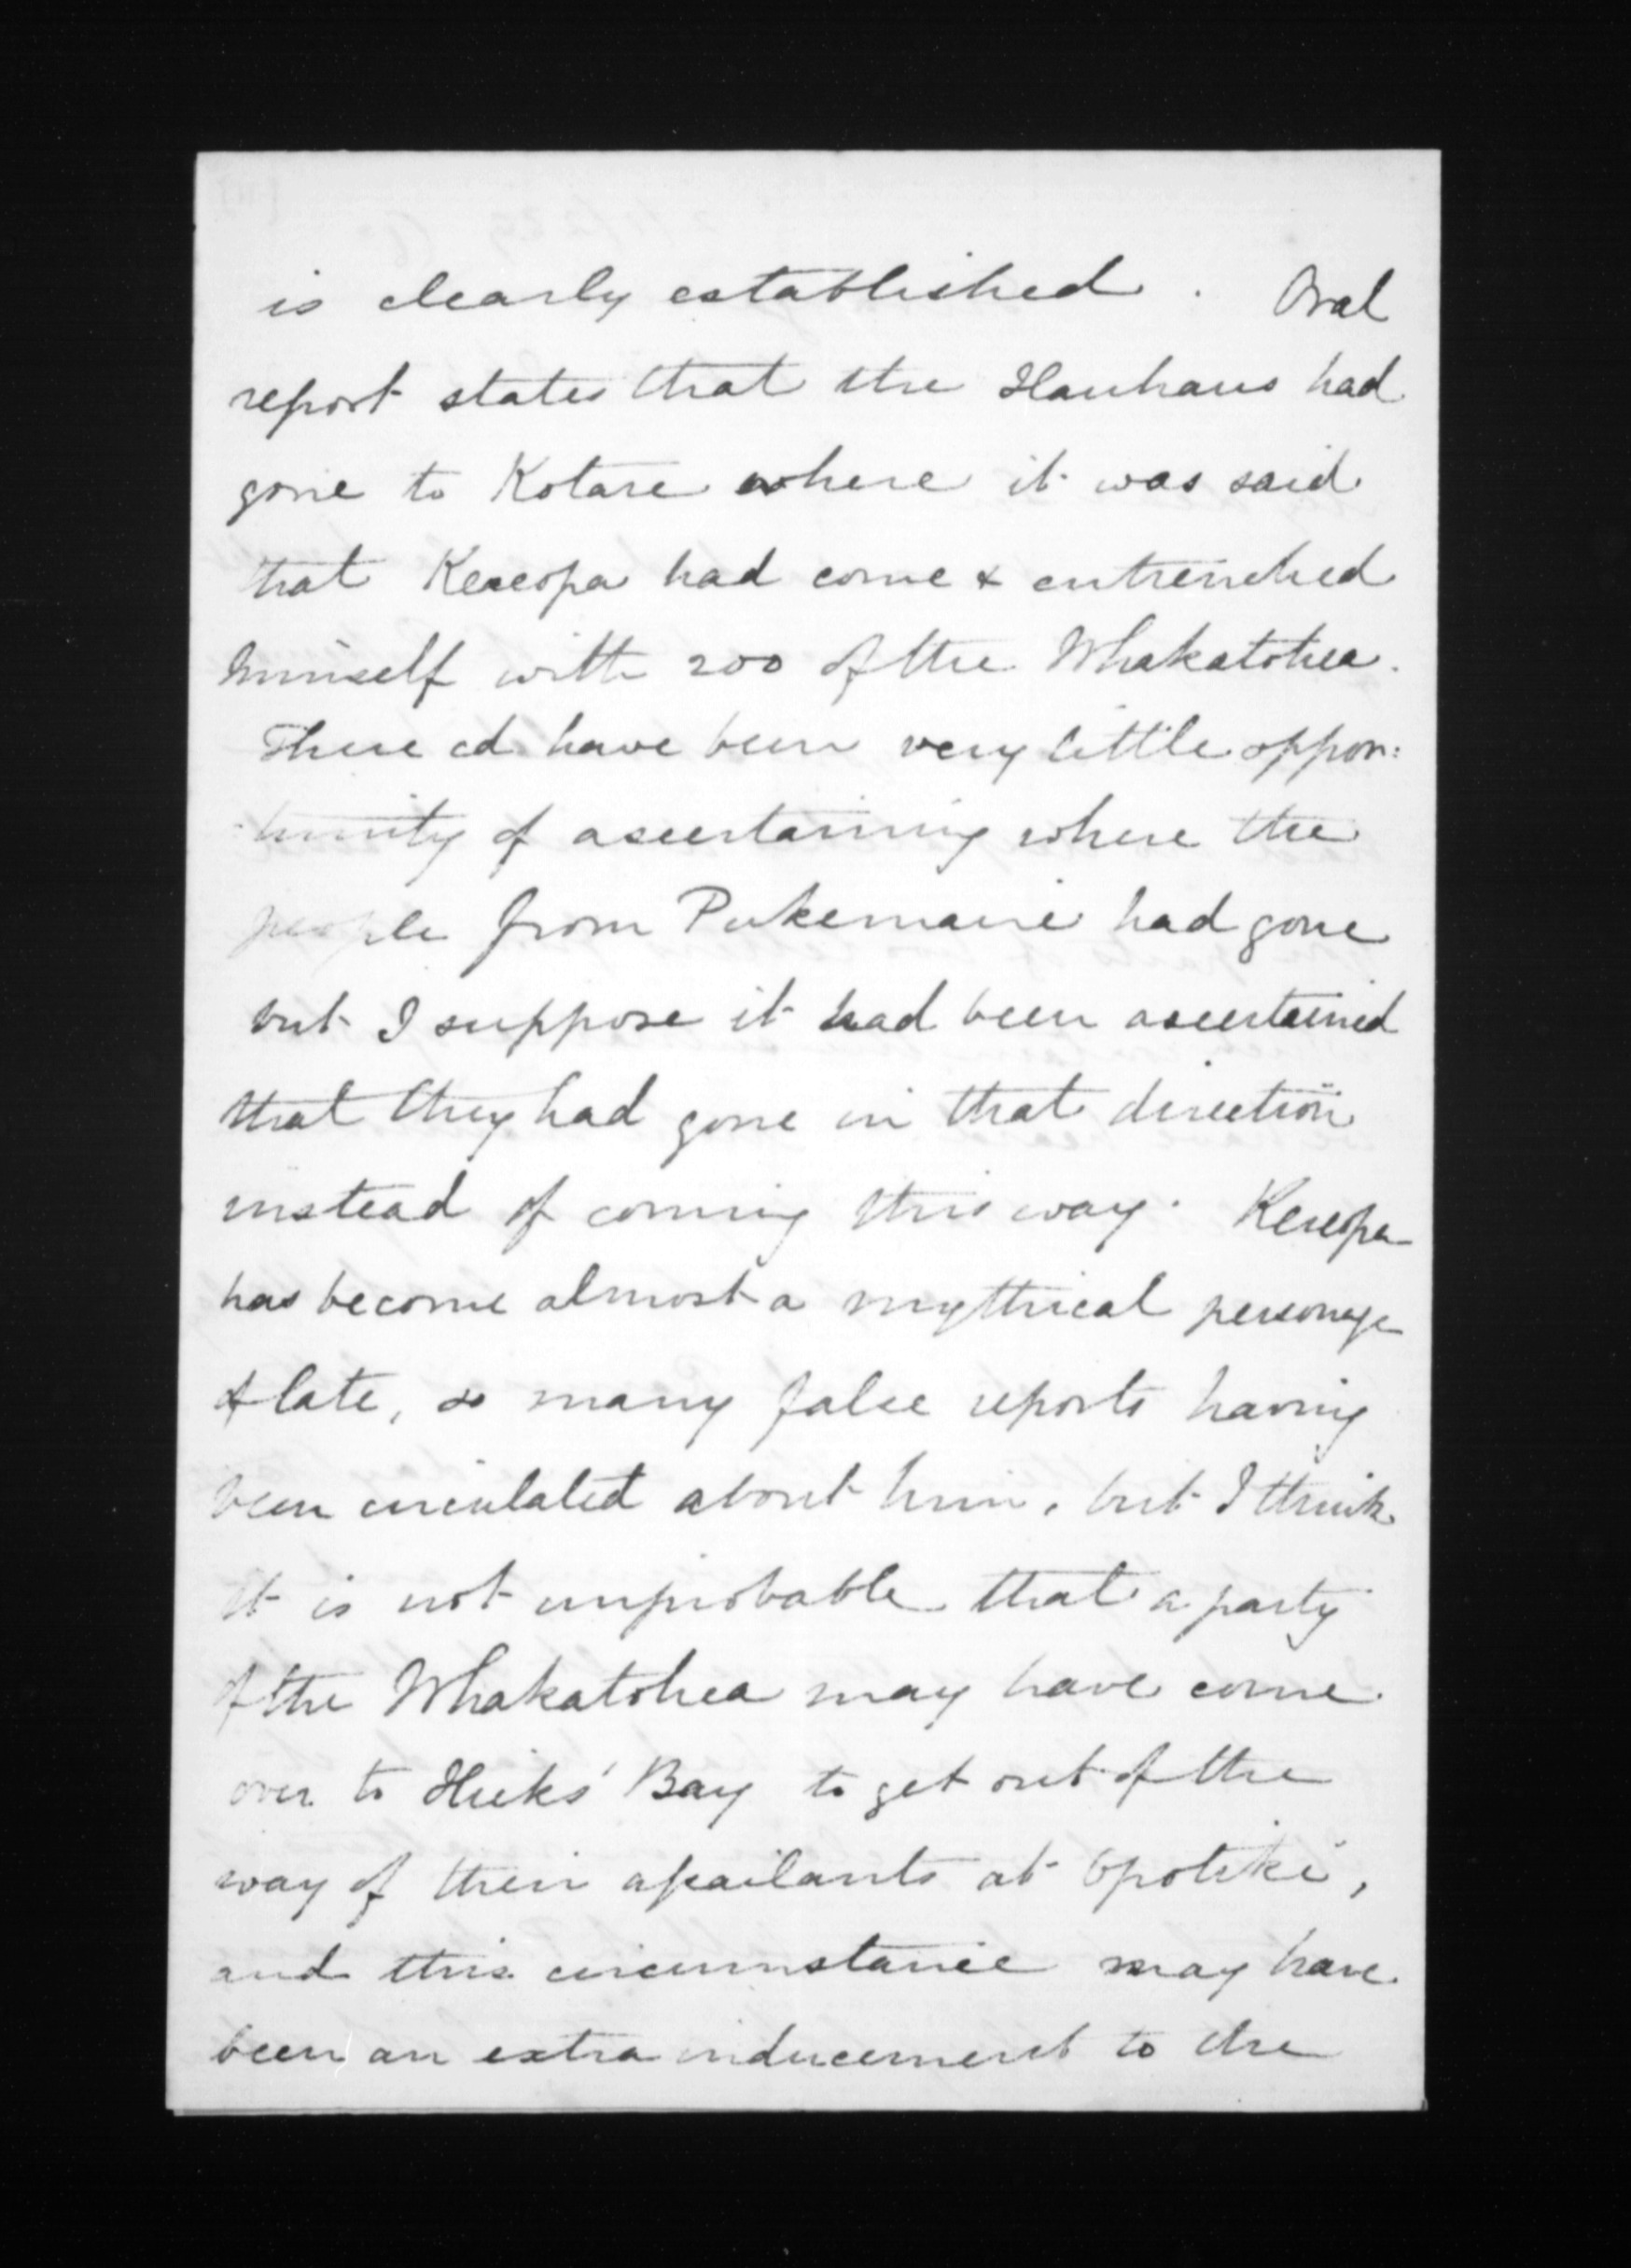 is clearly established. Oral
report states that the Hauhaus had
gone to Kotare where it was said
that Kereopa had come & entrenched
himself with 200 of the Whakatohea.
There cd have been very little oppor:
:tunity of ascertaining where the
people from Pukemaire had gone
but I suppose it had been ascertained
that they had gone in that direction
instead of coming this way. Kereopa
has become almost a mythical personage
of late, so many false reports having
been circulated about him, but I think
it is not improbable that a party
of the Whakatohea may have come
over to Hicks' Bay to get out of the
way of their assailants at Opotiki,
and this circumstance may have
been an extra inducement to the